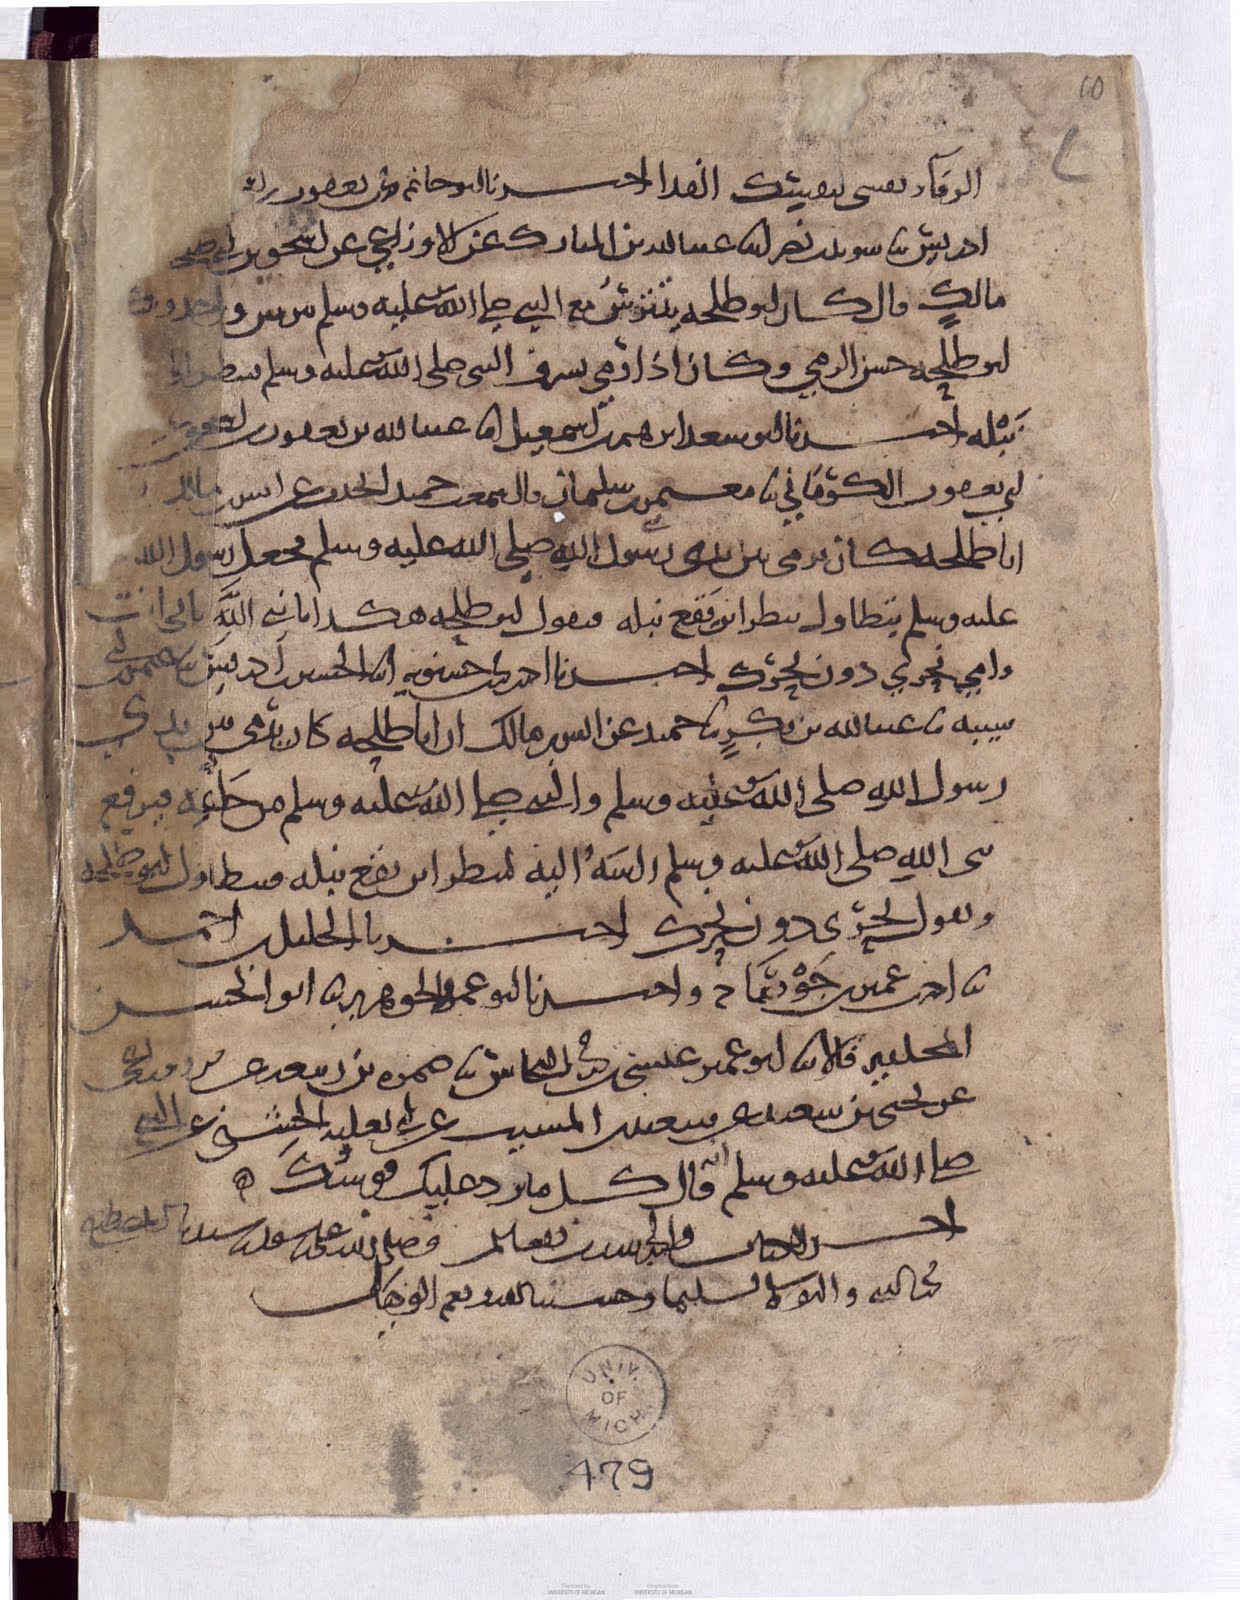 10
الوقاء نفسي لنفسك الفدا اخبرنا ابو حاتم بن يعقوب
ادريس نا سويد بن نصر انا عبد الله بن المبارك عن الاوزاعي عن اسحق بن
مالك قال كان ابو طلحة يتترس مع النبي صلى الله عليه وسلم بترس واحد وكان
ابو طلحة حسن الرمي وكان اذا رمى يشرف النبي صلى الله عليه وسلم ينظر الى
نبله اخبرنا ابو سعد ابن اسمعيل انا عبد الله بن يعقوب
ابي يعقوب الكرماني نا معتمر بن سليمان قال سمعت حميد يحدث عن انس بن مالك
ابا طلحة كان يرمي بين يدي رسول الله صلى الله عليه وسلم فجعل رسول الله
عليه وسلم يتطاول ينظر اين يقع نبله فيقول ابو طلحة هكذا يا نبي الله بابي انت
وامي نحري دون نحرك اخبرنا احمد بن حسنويه انا الحسين بن ادريس نا عثمن بن ابي
شيبه نا عبد الله بن بكر نا حميد عن انس بن مالك ان ابا طلحة كان يرمي بين يدي
رسول الله صلى الله عليه وسلم والنبي صلى الله عليه وسلم من خلفه فيرفع
نبي الله صلى الله عليه وسلم راسه اليه لينظر اين يقع نبله فيتطاول ابو طلحة
ويقول نحري دون نحرك اخبرنا الخليل بن احمد
نا احمد بن عمير بن جوصا ح واخبرنا ابو عمرو الجوهري نا ابو الحسن
المخلدي قالا نا ابو عمير عيسى بن محمد النحاس نا ضمره بن ربيعه عن
عن يحيى بن سعيد عن سعيد بن المسيب عن ابي ثعلبه الخشني عن النبي
صلى الله عليه وسلم انه قال كل ما رد عليك قوسك
وسلم تسليما وحسبنا الله ونعم الوكيل
UNIV. OF MICH.
479
Digitized by UNIVERSITY OF MICHIGAN
Original from UNIVERSITY OF MICHIGAN